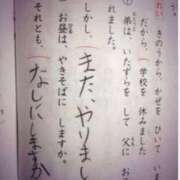 きのうから、かぜを ひいて いま
だから、学校を 休みました
① 弟は、いたずらを して 父に お
れました。
しかし、また、やりまし
② お昼は、やきそばに しますか。
それとも、なしにしますか